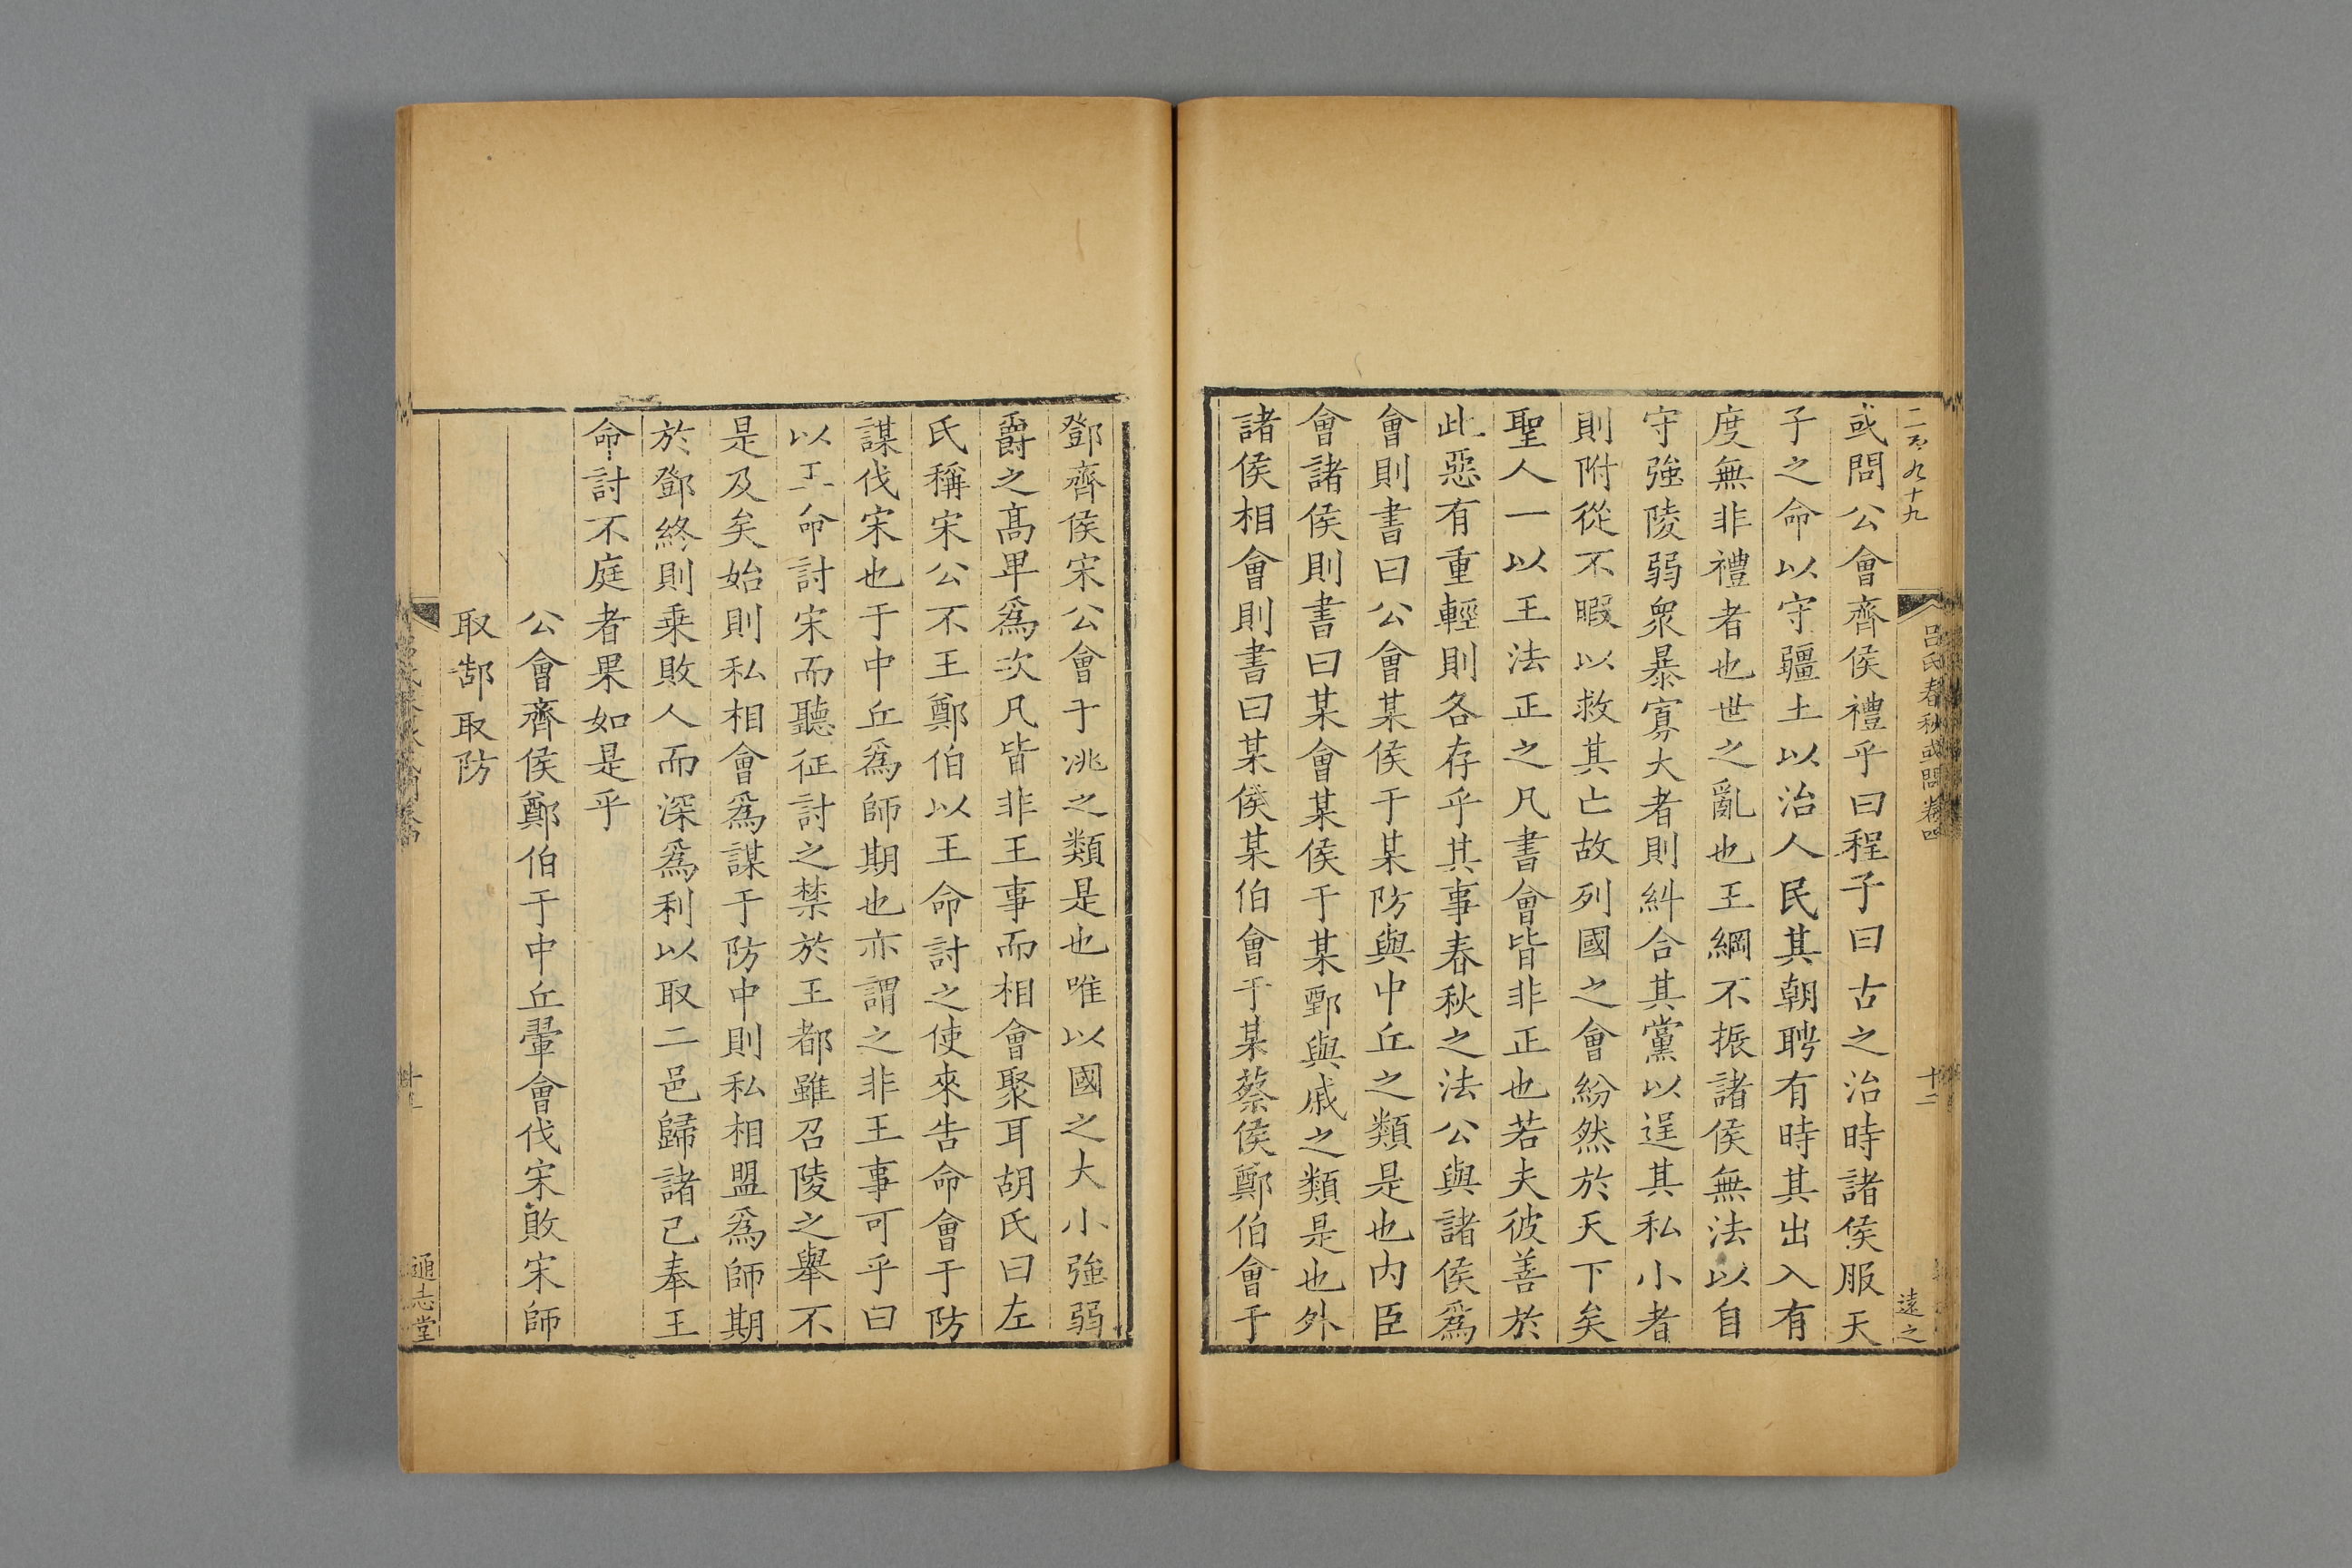 二百九十九
呂氏春秋或問卷四
十二
遠之
或問公會齊侯禮乎曰程子曰古之治時諸侯服天
子之命以守疆土以治人民其朝聘有時其出入有
度無非禮者也世之亂也王綱不振諸侯無法以自
守強陵弱衆暴寡大者則糾合其黨以逞其私小者
則附從不暇以救其亡故列國之會紛然於天下矣
聖人一以王法正之凡書會皆非正也若夫彼善於
此惡有重輕則各存乎其事春秋之法公與諸侯爲
會則書曰公會某侯于某防與中丘之類是也内臣
會諸侯則書曰某會某侯于某鄄與戚之類是也外
諸侯相會則書曰某侯某伯會于某蔡侯鄭伯會于
鄧齊侯宋公會于洮之類是也唯以國之大小強弱
爵之高卑爲次凡皆非王事而相會聚耳胡氏曰左
氏稱宋公不王鄭伯以王命討之使來告命會于防
謀伐宋也于中丘爲師期也亦謂之非王事可乎曰
以王命討宋而聽征討之禁於王都雖召陵之舉不
是及矣始則私相會爲謀于防中則私相盟爲師期
於鄧終則乘敗人而深爲利以取二邑歸諸己奉王
命討不庭者果如是乎
公會齊侯鄭伯于中丘翬會伐宋敗宋師
取郜取防
通志堂